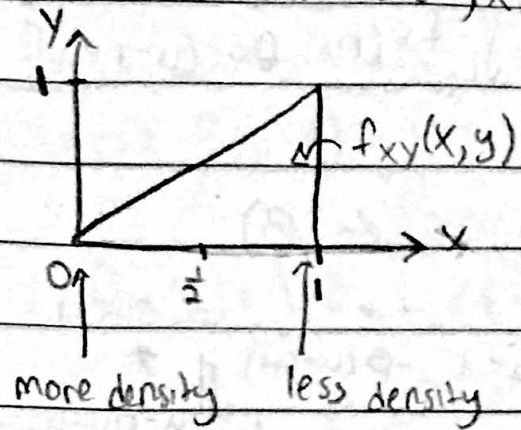 y
1
f_XY(x,y)
x
0
1/2
1
more density
less density